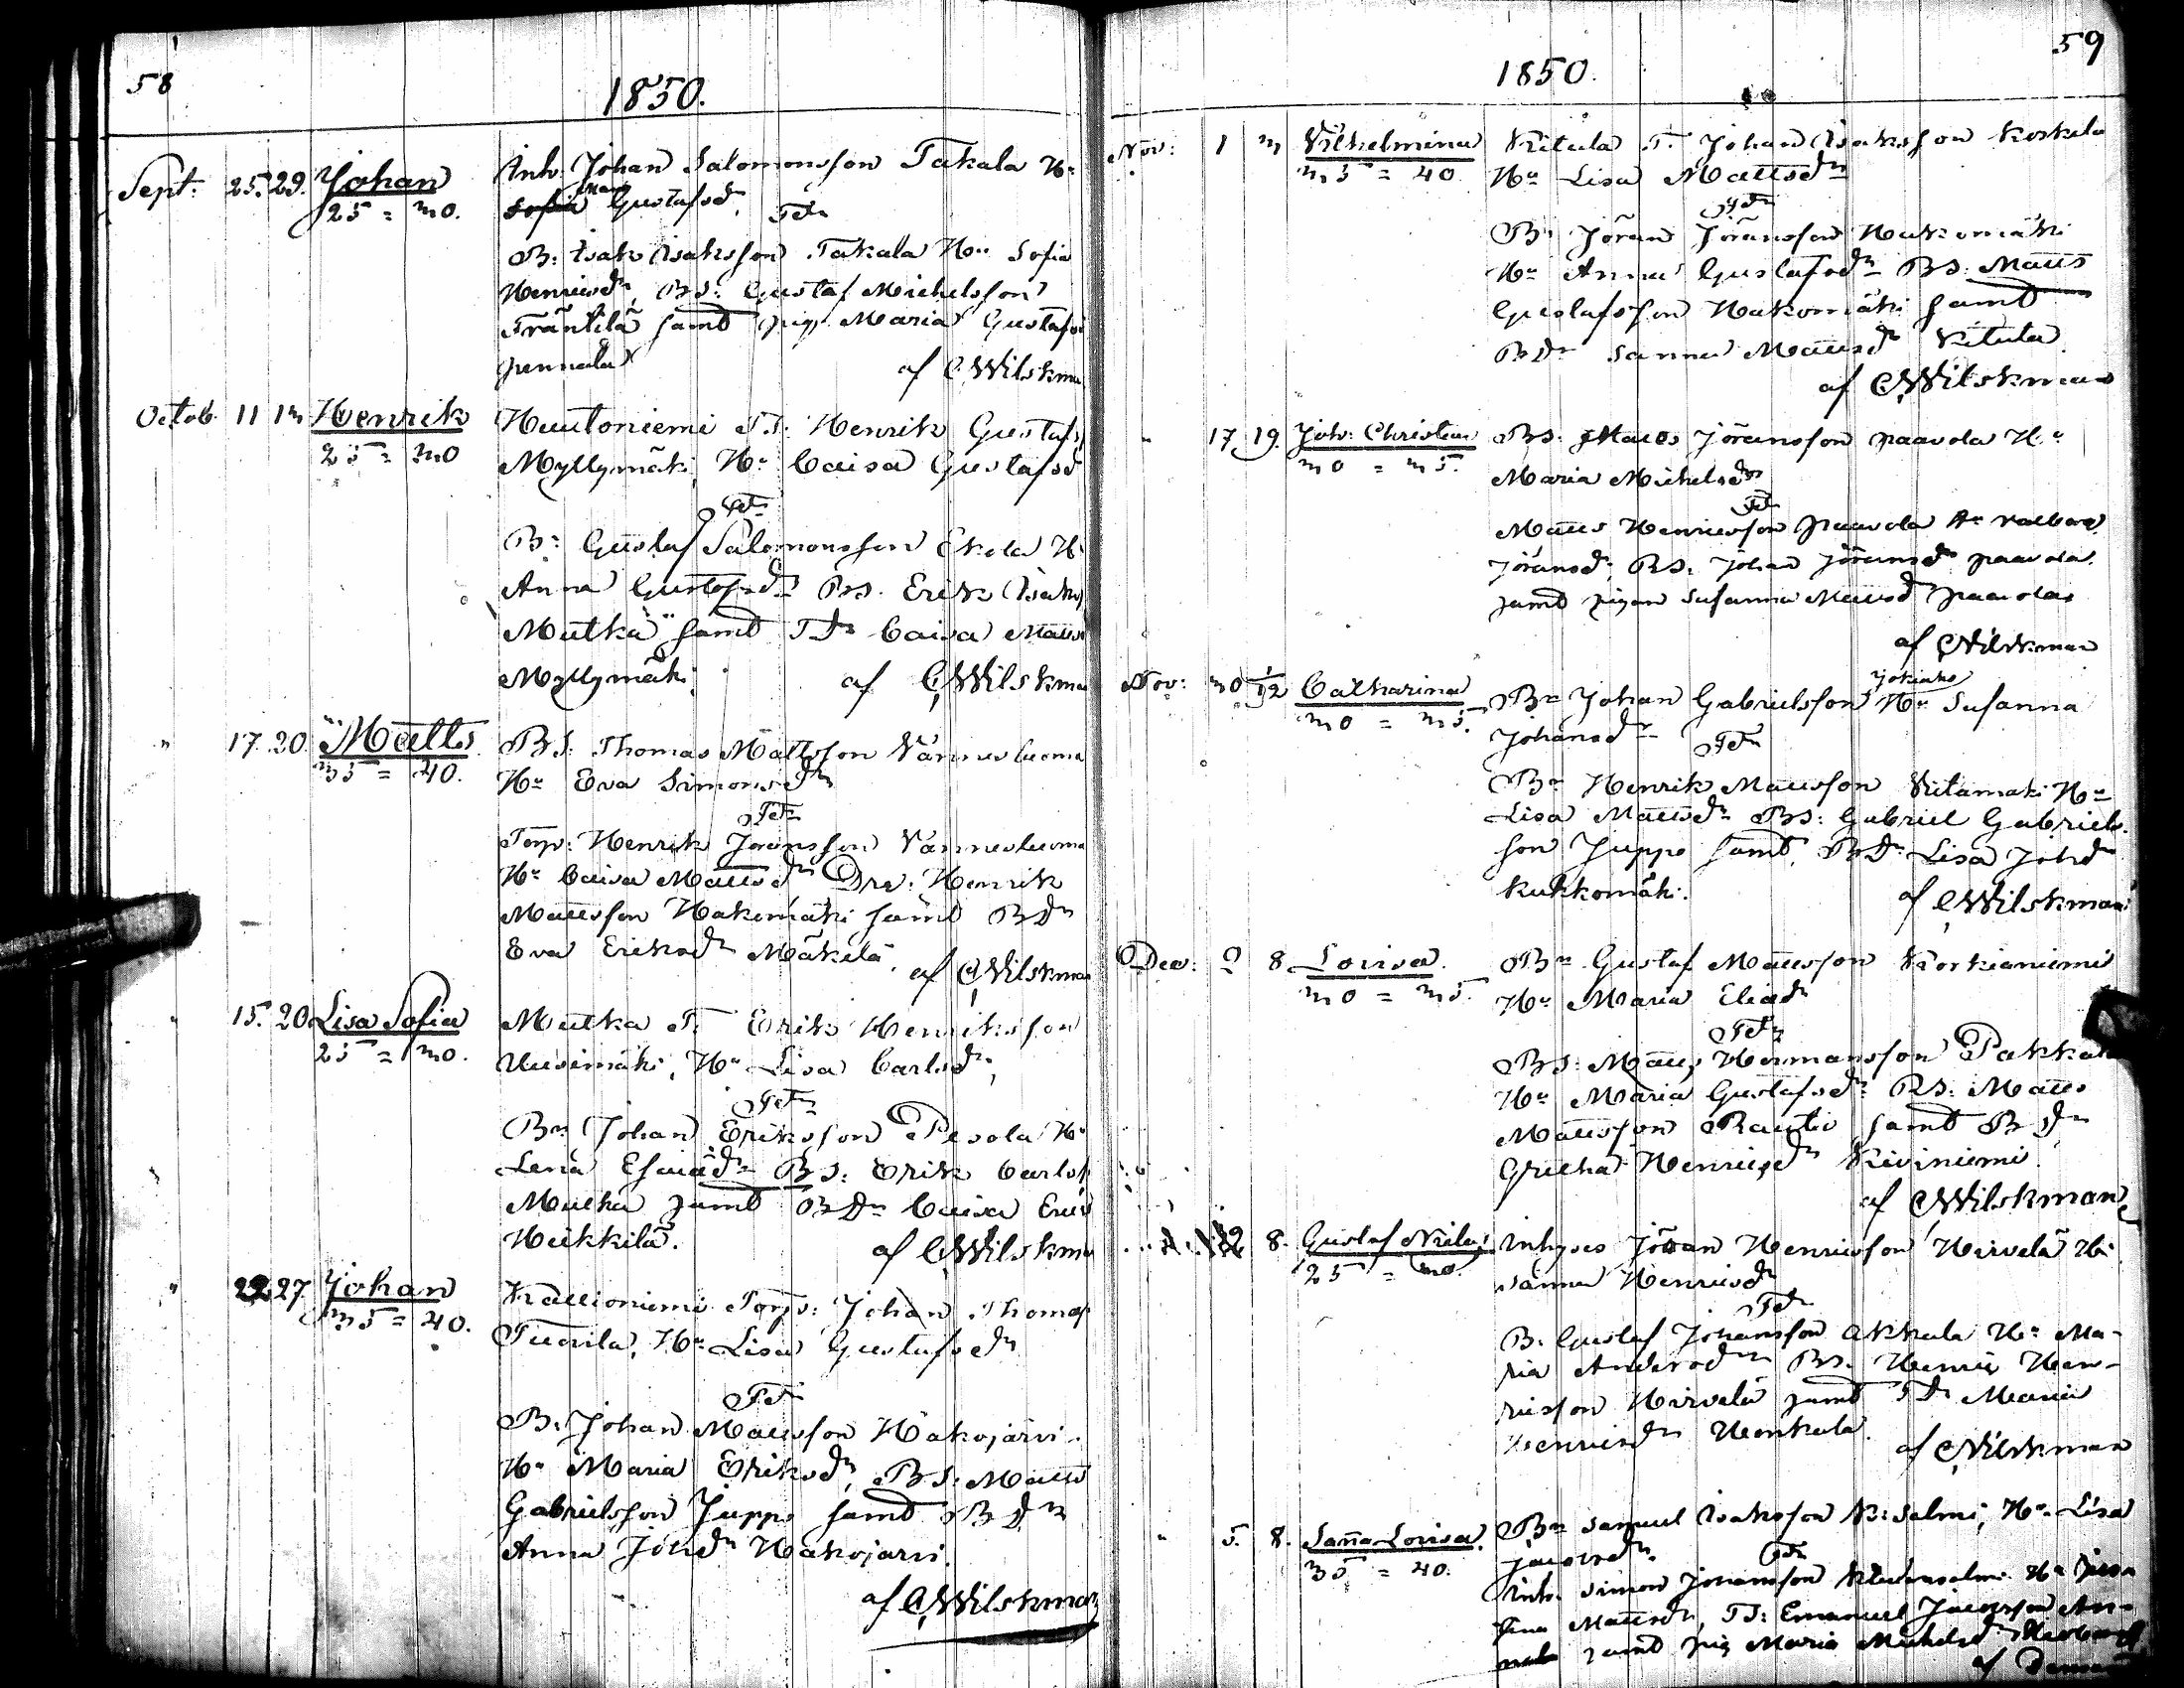 58
1850.
Sept: 25. 29. Johan
25 = 30.
Inh. Johan Salomonsson Takala Hu
Maria
Sofia Gustafsdr
Fdr
B: Isak Isaksson Takala Hu Sofia
Henricsdr, BS: Gustaf Michelsson
Fräntilä samt pig. Maria Gustafsd
Pennala
af CWilskman
Octob. 11 13 Henrik
25 = 30
Huutoniemi TS: Henrik Gustafs
Myllymäki, Hu Caisa Gustafsd
Fdr
Bn Gustaf Salomonsson Ekola Hu
Anna Gustafsdr BS. Erik Isaks
Mutka samt TDr Caisa Matts
Myllymäki.
af CWilskman
" 17. 20. Matts
35 = 40.
BS: Thomas Mattsson Vännesluoma
Hu Eva Simonsdr
Fdr
Torp: Henrik Jöransson Vännesluoma
Hu Caisa Mattsdr Drg: Henrik
Mattsson Hakomäki samt BDr
Eva Eriksdr Mäkelä.
af CWilskman
" 15. 20 Lisa Sofia
25 = 30.
Mutka T. Erik Henriksson
Uusimäki, Hu Lisa Carlsdr,
Fdr
Bn Johan Eriksson Pesola Hu
Lena Esaiädr BS: Erik Carls
Mutka samt BDr Caisa Erics
Heikkilä.
af CWilskman
" 22 27 Johan
35 = 40.
Kallioniemi Torp: Johan Thomas
Tuorila, Hu Lisa Gustafsdr
Fdr
B: Johan Mattsson Hakojärvi.
Hu Maria Eriksdr, BS: Matts
Gabrielsson Juppo samt BDr
Anna Johdr Hakojärvi.
af CWilskman
59
1850.
Nov: 1 3 Vilhelmina
35 = 40.
Kitula T. Johan Isaksson Koskela
Hu Lisa Mattsdr
Fdr
B: Jöran Jöransson Hakomäki
Hu Anna Gustafsdr BS: Matts
Gustafsson Hakomäki samt
BDr Sanna Mattsdr Kitula
af CWilskman
" 17 19. Joh: Christian
30 = 35.
BS: Matts Jöransson Paavola Hu
Maria Michelsdr
Fdr
Matts Henricsson Paavola Hu Valborg
Jöransdr, BS: Johan Jöransdr Paavola
samt pigan Susanna Mattsd Paavola
af CWilskman
Nov: 30 1/12 Catharina
30 = 35.
Jokiaho
Bn Johan Gabrielsson Hu Susanna
Johansdr
Fdr
Bn Henrik Mattsson Kitamäki Hu
Lisa Mattsdr BS: Gabriel Gabriels-
son Juppo samt BDr Lisa Johdr
Kukkomäki.
af CWilskman
Dec: 2 8 Lovisa.
30 = 35.
Bn Gustaf Mattsson Korkianiemi
Hu Maria Eliädr
Fdr
BS: Matts Hermansson Pakkala
Hu Maria Gustafsdr BS: Matts
Mattsson Rautio samt BDr
Gretha Henricsdr Kiviniemi.
af CWilskman
2 8. Gustaf Nilus
25 = 30.
Inhyses Johan Henricsson Hirvelä Hu
Sanna Henricsdr
Fdr
B: Gustaf Johansson Akkala Hu Ma-
ria Andersdr BS. Henric Hen-
ricsson Hirvelä samt TDr Maria
Henricsdr Honkala.
af CWilskman
" 5. 8. Sanna Lovisa.
35 = 40.
Bn Samuel Isaksson K: Salmi, Hu Lisa
Jacobsdr
Fdr
Inh. Simon Johansson Hu
Mattsdr, TS: Emanuel Jacobsson An-
nala samt pig Maria Michelsdr
af